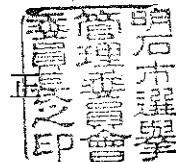 明石市選擧
管理委員會
委員長之印
正